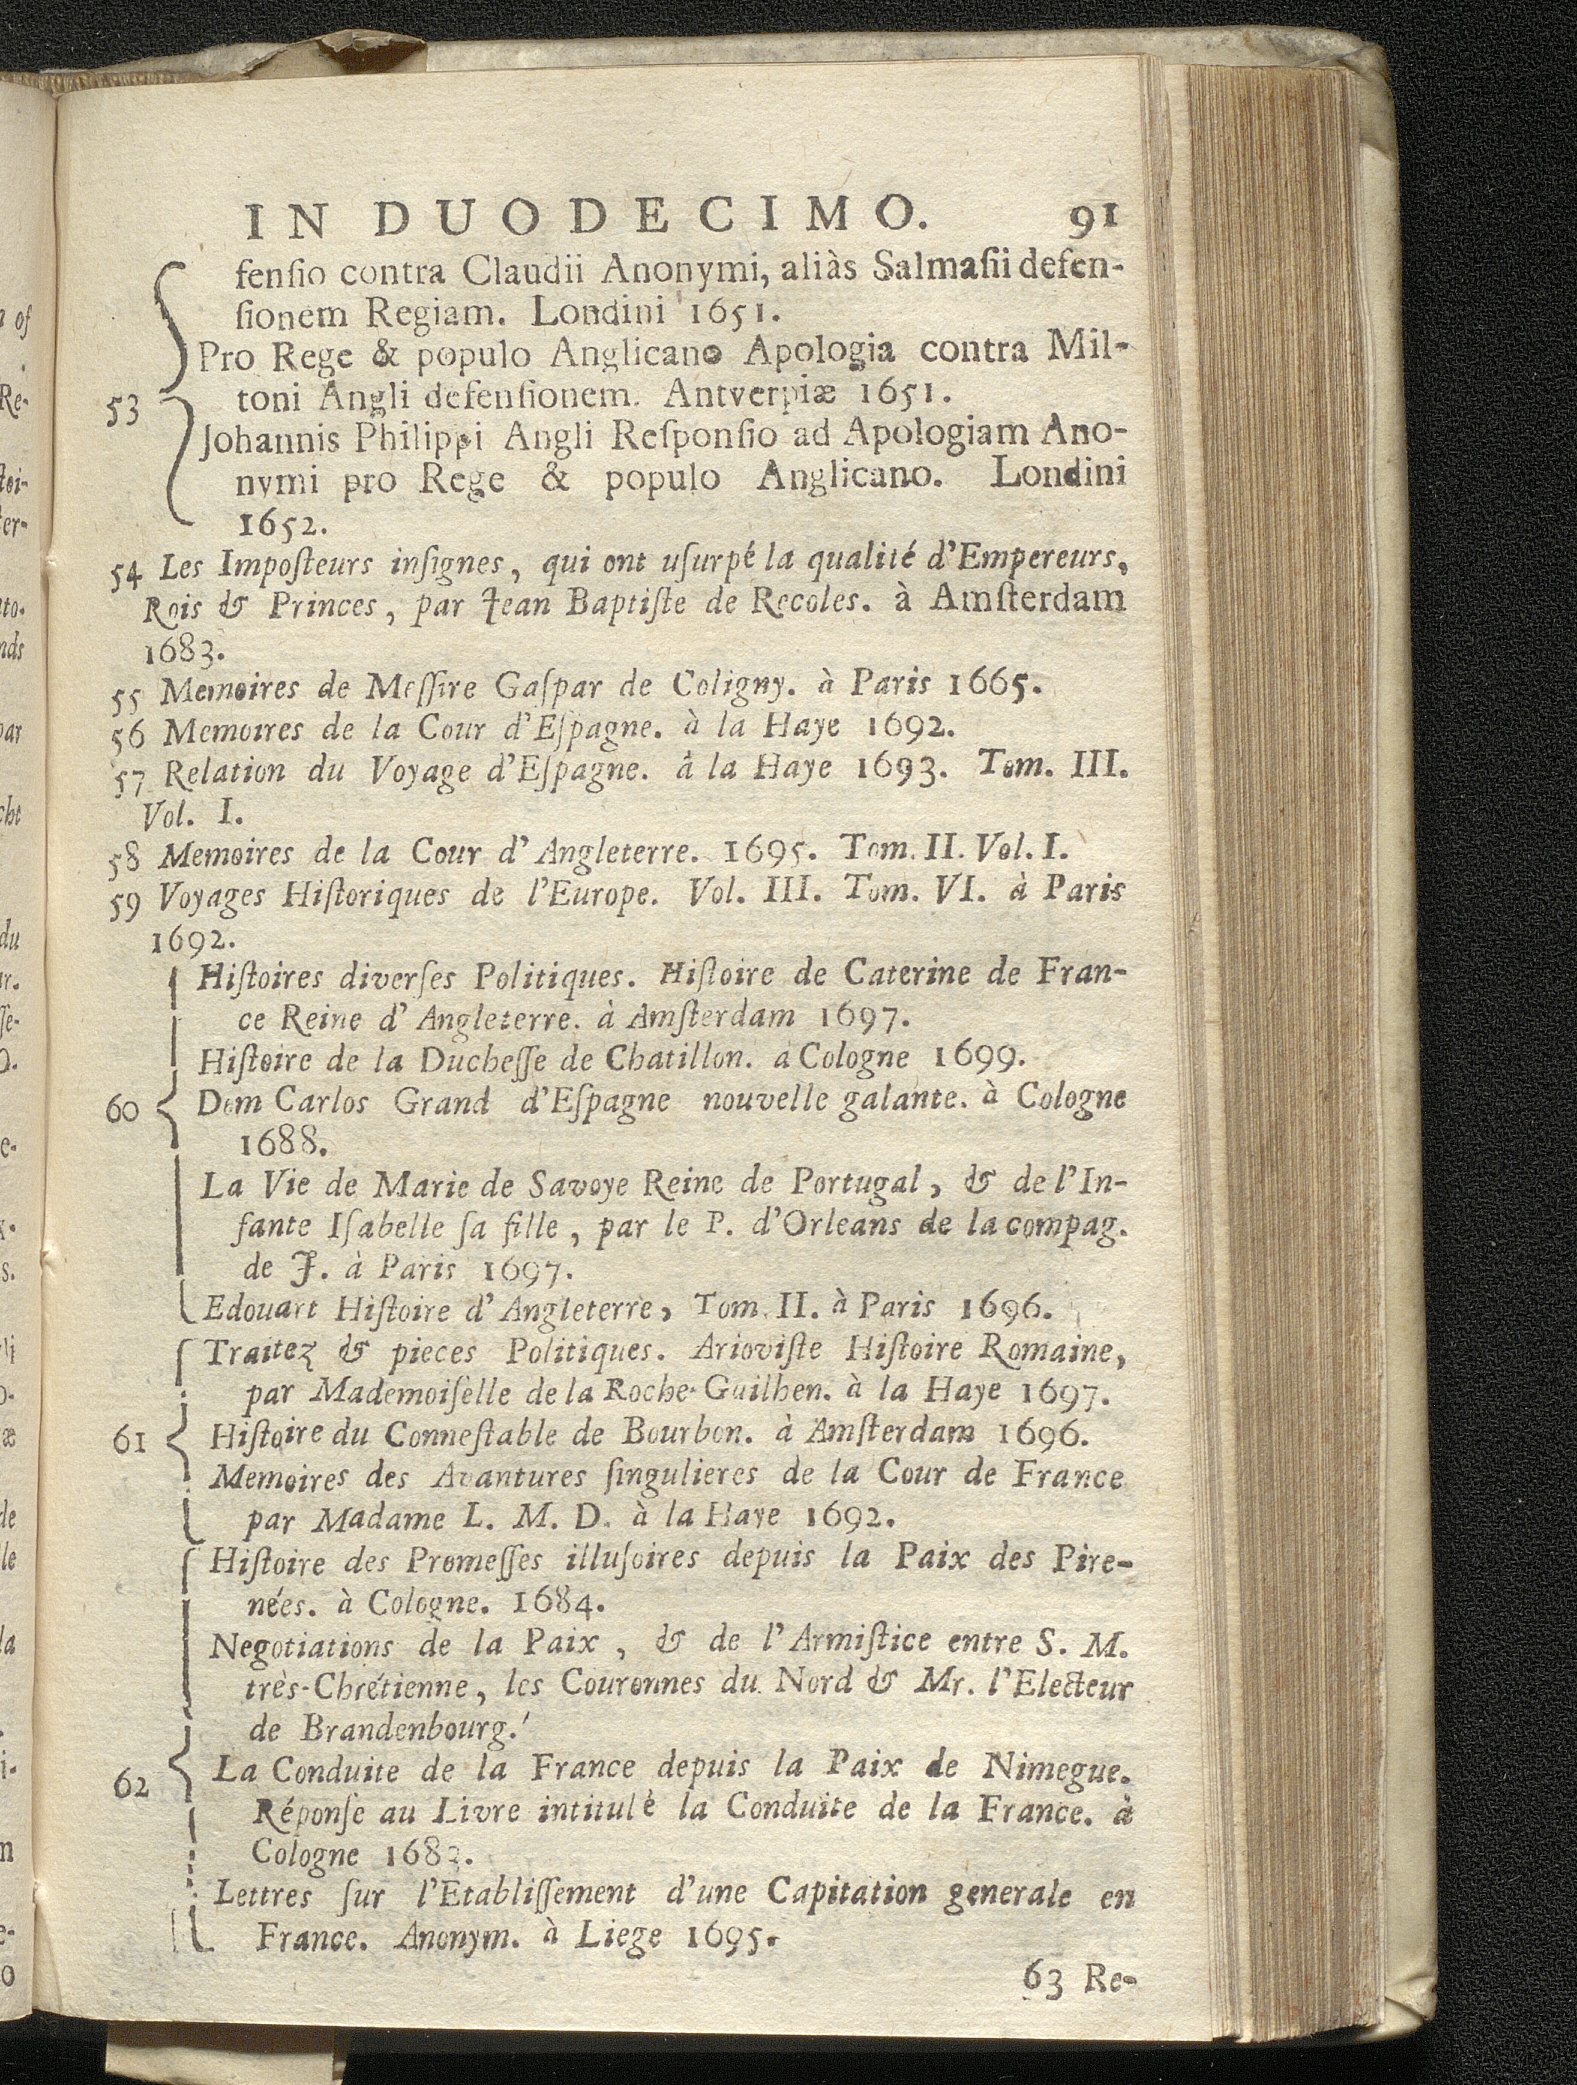 IN DUODECIMO. 91
fenſio contra Claudii Anonymi, aliàs Salmaſii defen-
ſionem Regiam. Londini 1651.
Pro Rege & populo Anglicano Apologia contra Mil-
53 toni Angli defenſionem. Antverpiæ 1651.
Johannis Philippi Angli Reſponſio ad Apologiam Ano-
nymi pro Rege & populo Anglicano. Londini
1652.
54 Les Impoſteurs inſignes, qui ont uſurpé la qualité d'Empereurs,
Rois & Princes, par Jean Baptiſte de Recoles. à Amſterdam
1683.
55 Memoires de Meſſire Gaſpar de Coligny. à Paris 1665.
56 Memoires de la Cour d'Eſpagne. à la Haye 1692.
57 Relation du Voyage d'Eſpagne. à la Haye 1693. Tom. III.
Vol. I.
58 Memoires de la Cour d'Angleterre. 1695. Tom. II. Vol. I.
59 Voyages Hiſtoriques de l'Europe. Vol. III. Tom. VI. à Paris
1692.
Hiſtoires diverſes Politiques. Hiſtoire de Caterine de Fran-
ce Reine d'Angleterre. à Amſterdam 1697.
Hiſtoire de la Ducheſſe de Chatillon. à Cologne 1699.
60 Dom Carlos Grand d'Eſpagne nouvelle galante. à Cologne
1688.
La Vie de Marie de Savoye Reine de Portugal, & de l'In-
fante Iſabelle ſa fille, par le P. d'Orleans de la compag.
de J. à Paris 1697.
Edouart Hiſtoire d'Angleterre, Tom. II. à Paris 1696.
Traitez & pieces Politiques. Arioviſte Hiſtoire Romaine,
par Mademoiſelle de la Roche-Guilhen. à la Haye 1697.
61 Hiſtoire du Conneſtable de Bourbon. à Amſterdam 1696.
Memoires des Avantures ſingulieres de la Cour de France
par Madame L. M. D. à la Haye 1692.
Hiſtoire des Promeſſes illuſoires depuis la Paix des Pire-
nées. à Cologne. 1684.
Negotiations de la Paix, & de l'Armiſtice entre S. M.
très-Chrétienne, les Couronnes du Nord & Mr. l'Electeur
de Brandenbourg.
62 La Conduite de la France depuis la Paix de Nimegue.
Réponſe au Livre intitulè la Conduite de la France. à
Cologne
Lettres ſur l'Etabliſſement d'une Capitation generale en
France. Anonym. à Liege 1695.
63 Re-